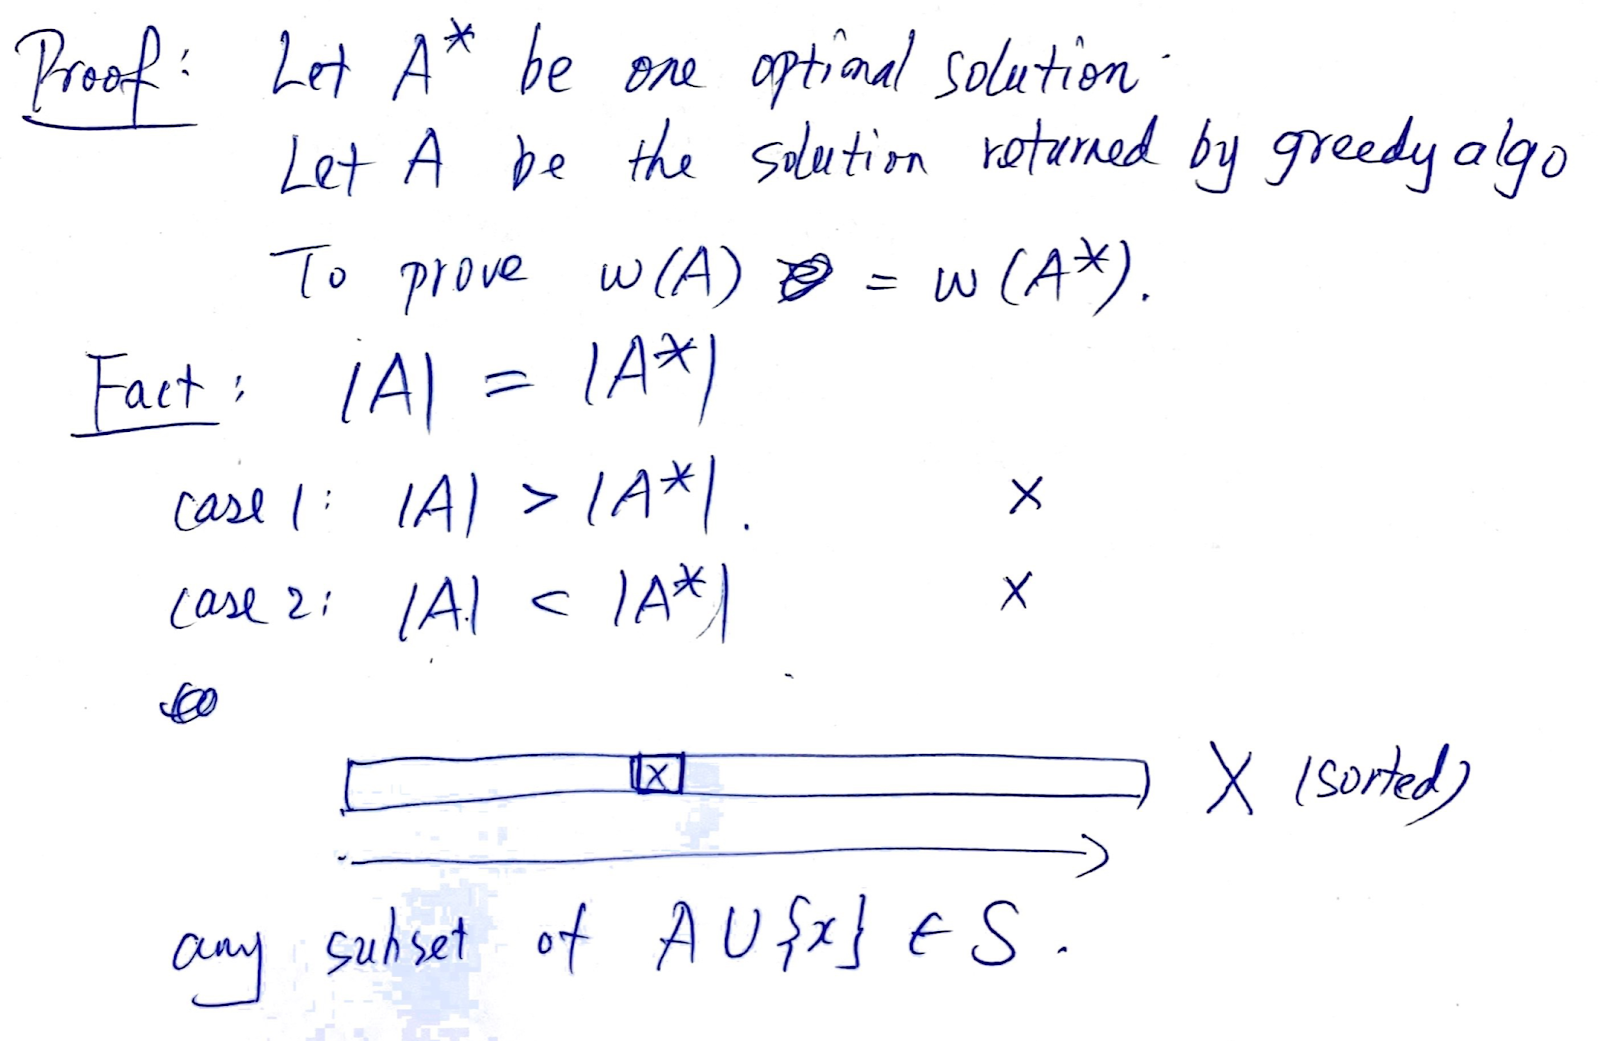 Proof: Let A* be one optimal solution.
Let A be the solution returned by greedy algo
To prove w(A) = w(A*).
Fact: |A| = |A*|
case 1: |A| > |A*|. X
case 2: |A| < |A*| X
X X (sorted)
any subset of A ∪ {x} ∈ S.